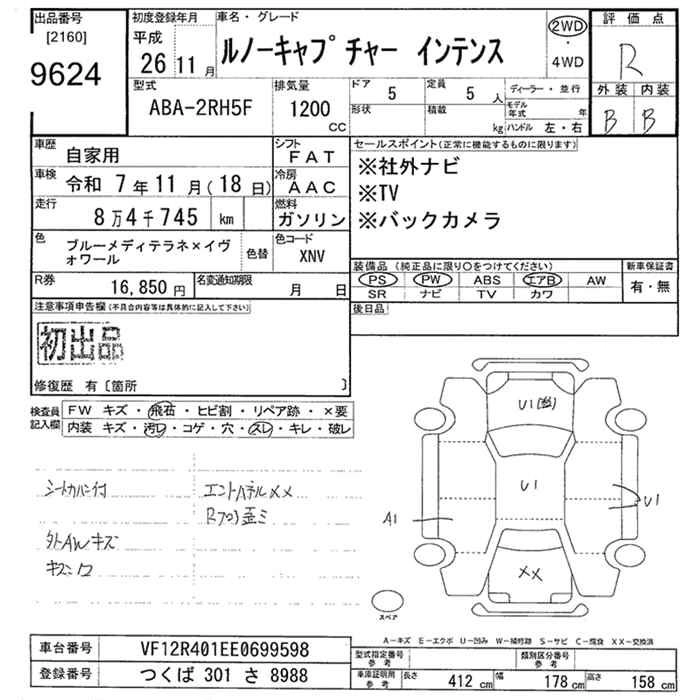 出品番号
[2160]
9624
初度登録年月
平成
26年11月
車名・グレード
ルノーキャプチャー インテンス
2WD
・
4WD
評価点
R
外装 内装
B B
型式
ABA-2RH5F
排気量
1200
CC
ドア 5
定員 5 人
形状
積載 kg
ディーラー・並行
モデル年式 年
ハンドル 左・右
車歴 自家用
シフト FAT
車検 令和 7年11月(18日)
冷房 AAC
走行 8万4千745 km
燃料 ガソリン
色 ブルーメディテラネ×イヴォワール
色替
色コード XNV
R券 16,850円
名変通知期限 月 日
セールスポイント(正常に機能するものに限ります)
※社外ナビ
※TV
※バックカメラ
装備品 (純正品に限り〇をつけてください)
PS PW ABS エアB AW
SR ナビ TV カワ
新車保証書
有・無
後日品
注意事項申告欄(不具合内容等は具体的に記入して下さい)
初出品
修復歴 有〔箇所 〕
検査員記入欄
FW キズ・飛石・ヒビ割・リペア跡・×要
内装 キズ・汚レ・コゲ・穴・スレ・キレ・破レ
シートカバー付
エンドパネルXX
外AWキズ
U1
U1
U1
A1
XX
スペア
A-キズ E-エクボ U-凹み W-補修跡 S-サビ C-腐食 XX-交換済
車台番号 VF12R401EE0699598
登録番号 つくば 301 さ 8988
型式指定番号 参考
類別区分番号 参考
車庫証明用 参考
長さ 412 cm
幅 178 cm
高さ 158 cm